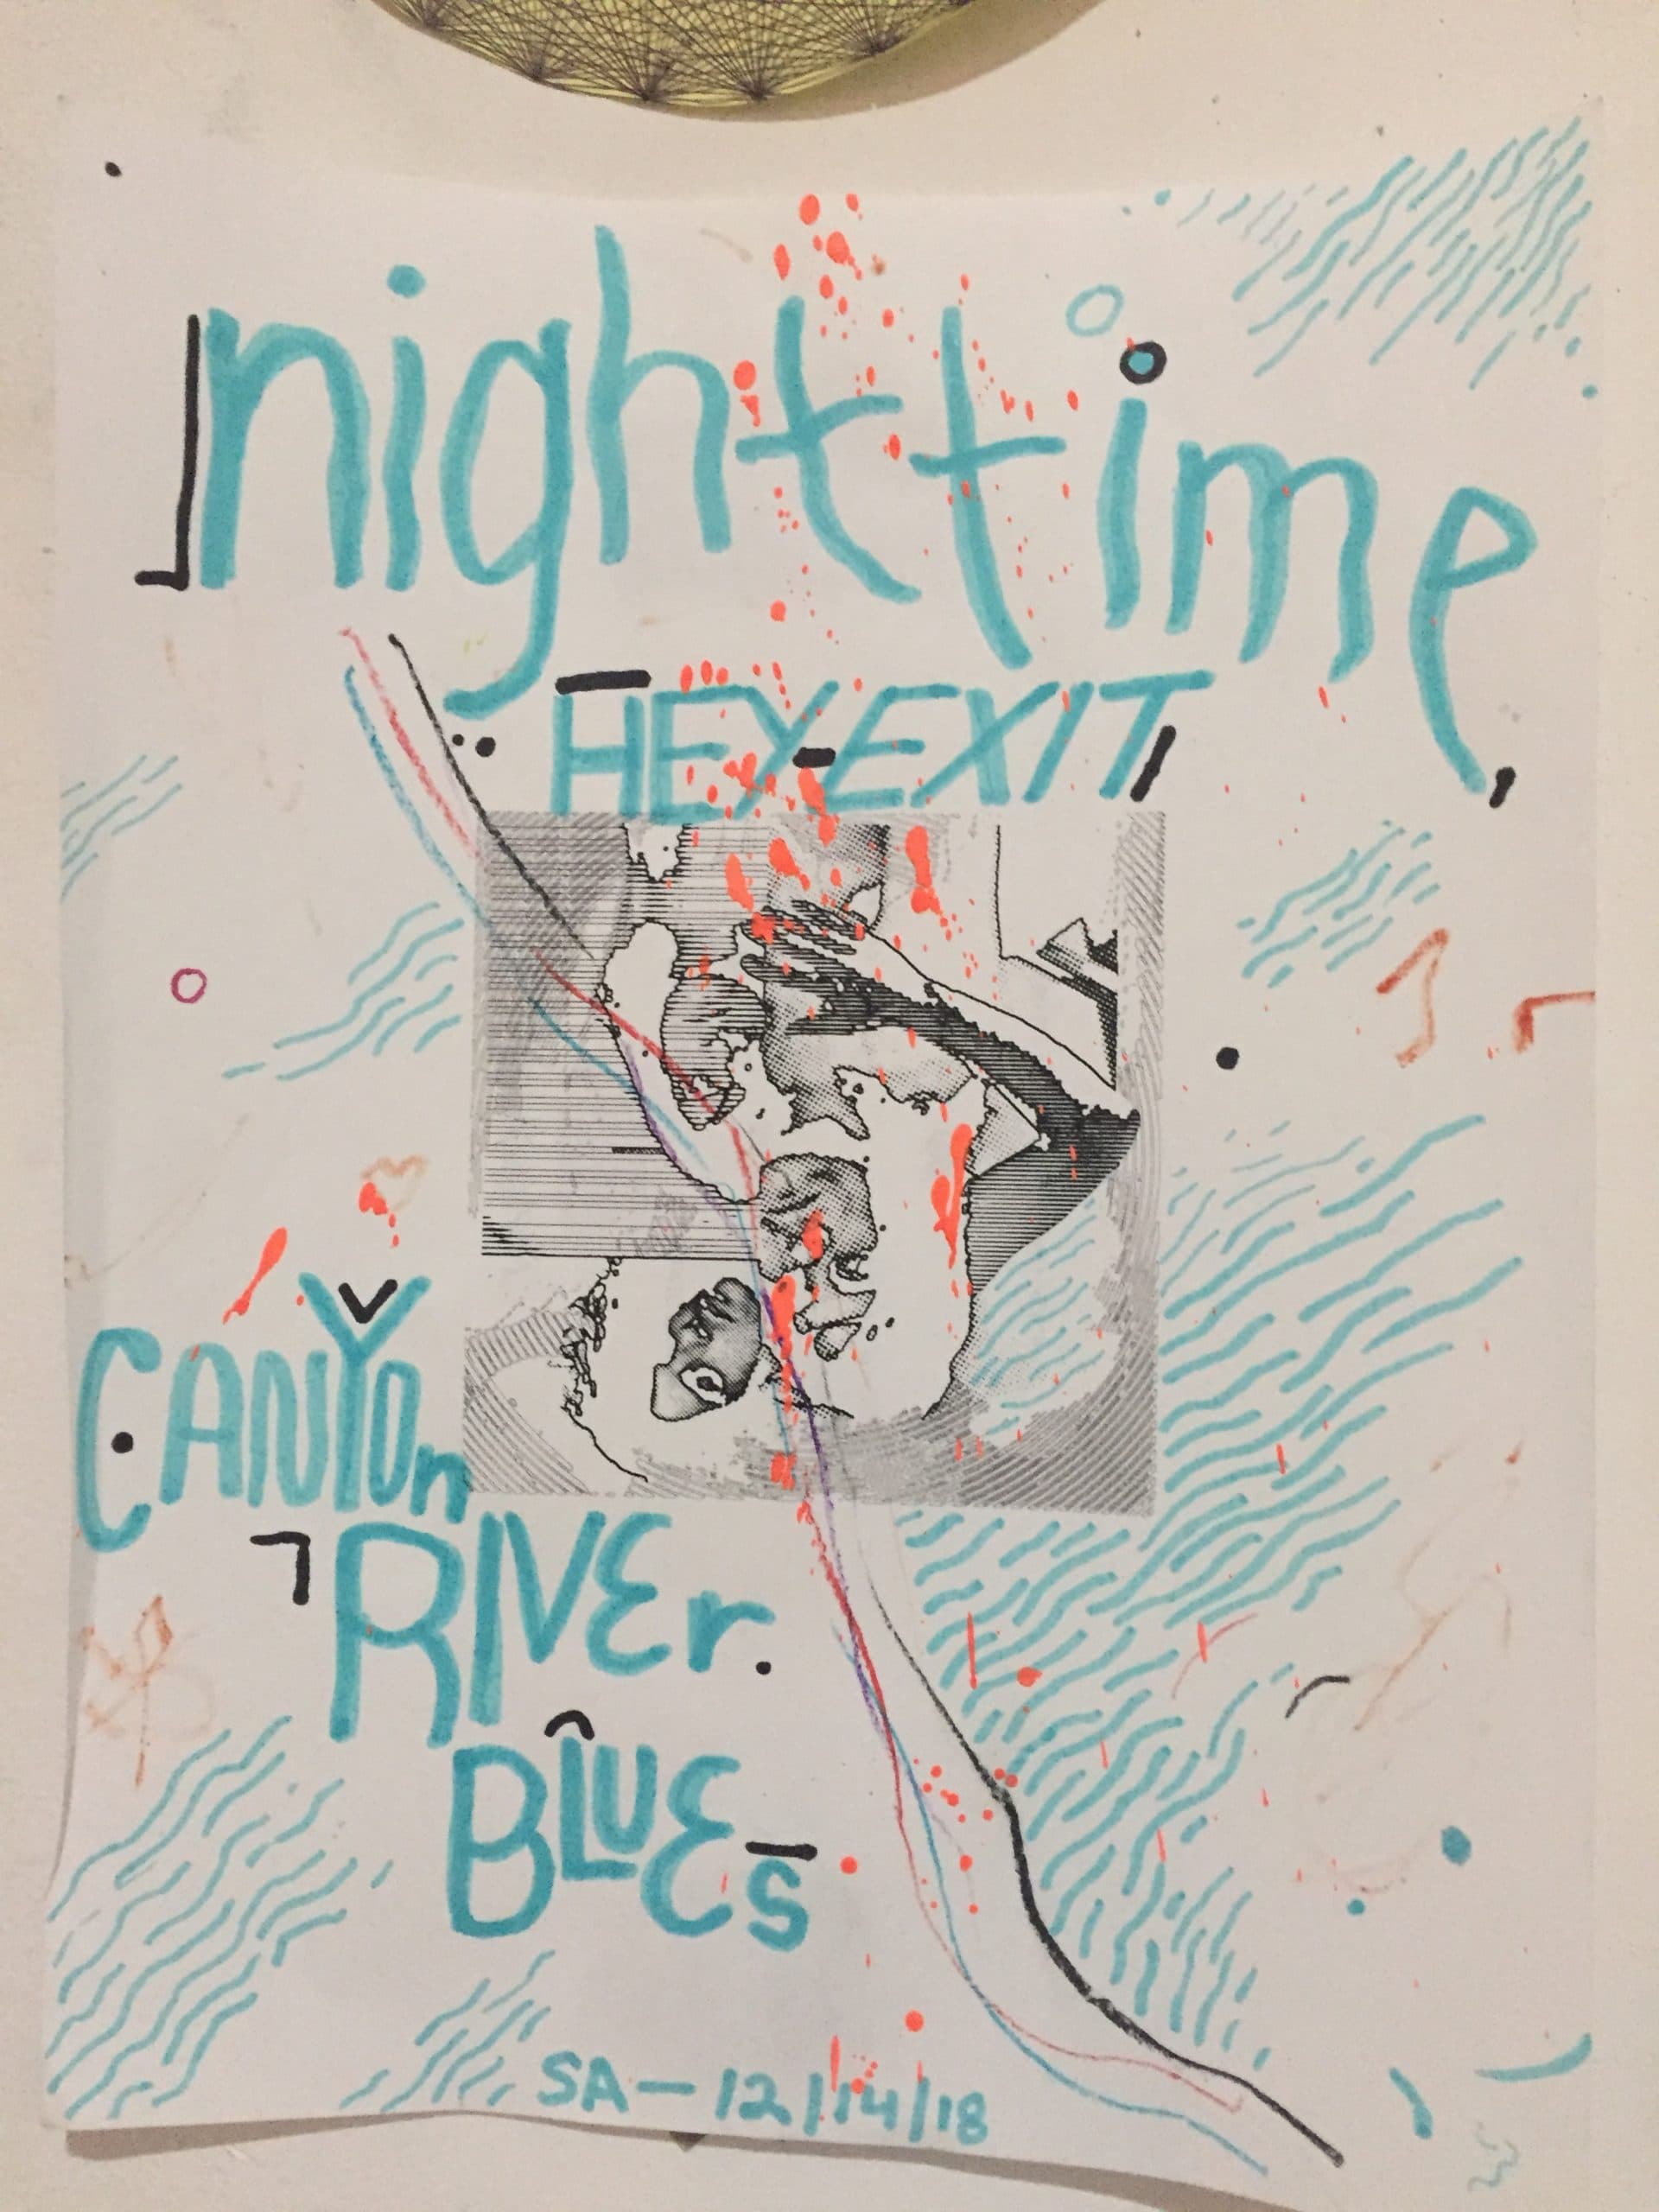 nighttime
HEY EXIT
CANYOn
RIVEr
BLUES
SA - 12/14/18